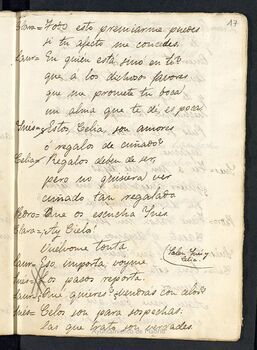 17
Clara= Todo esto premiarme puedes
si tu afecto me concedes.
Laur= En quien está, sino en ti?
que a los dichosos favores
que me promete tu boca
un alma que te dí, es poca
Ines= Estos, Celia, son amores
ó regalos de cuñado?
Celia= Regalos deben de ser,
pero no quisiera ver
cuñado tan regalado
Que os escucha Ines
Clara= ¡Ay Cielo!
Vuelvome tonta
Salen Ines y Celia
Laur= Eso importa, voyme.
Ines= Los pasos reporte.
Laur= Que quieres?
Ines= Celos son para sospechas:
las que trato son verdades.